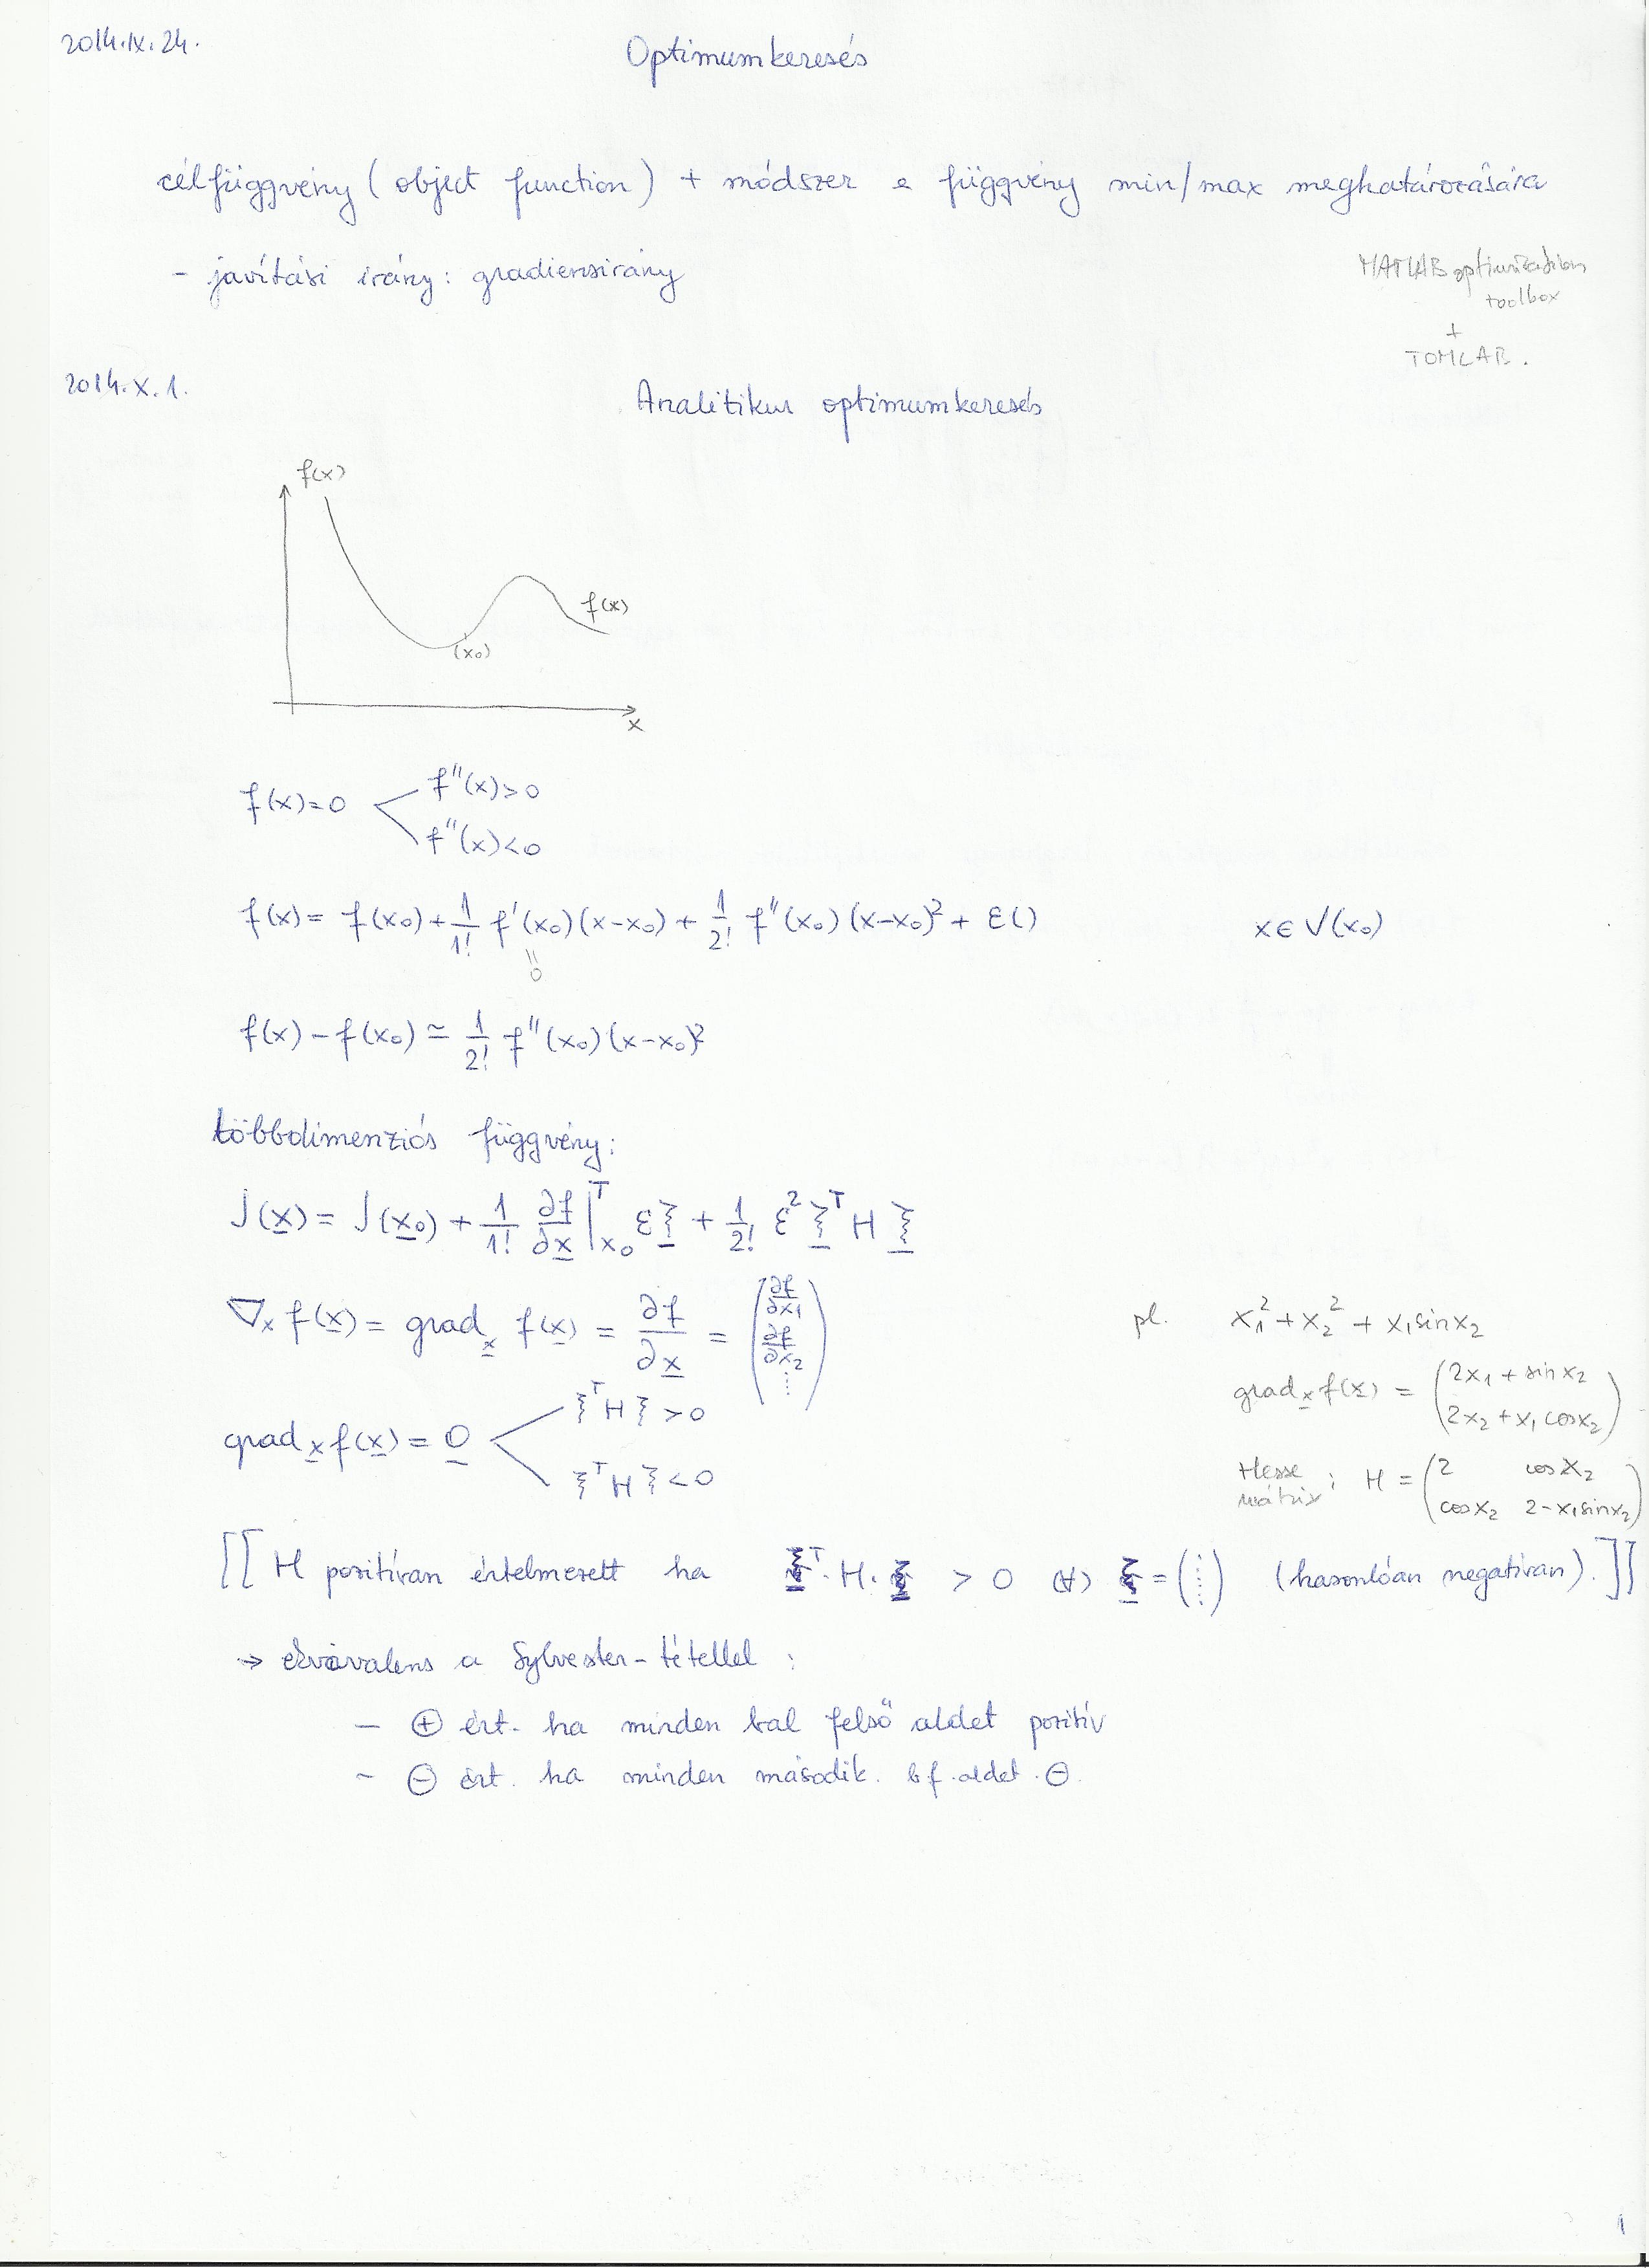 2014.IX.24.
Optimumkeresés
célfüggvény (object function) + módszer a függvény min/max meghatározására
- javítási irány: gradiensirány
MATLAB optimization
toolbox
+
TOMLAB.
2014.X.1.
Analitikus optimumkeresés
f(x)
f(x)
(x₀)
x
f(x)=0 < f''(x)>0
f''(x)<0
f(x) = f(x₀) + 1/1! f'(x₀)(x-x₀) + 1/2! f''(x₀)(x-x₀)² + ε() x∈V(x₀)
=0
f(x) - f(x₀) ≃ 1/2! f''(x₀)(x-x₀)²
többdimenziós függvény:
J(x) = J(x₀) + 1/1! ∂f/∂x |ᵀx₀ εξ + 1/2! ε² ξᵀ H ξ
∇ₓ f(x) = gradₓ f(x) = ∂f/∂x = (∂f/∂x₁ ∂f/∂x₂ ⋮)
pl. x₁² + x₂² + x₁sinx₂
gradₓ f(x) = (2x₁ + sinx₂
2x₂ + x₁cosx₂)
gradₓ f(x) = 0 < ξᵀHξ > 0
ξᵀHξ < 0
Hesse
mátrix: H = (2 cosx₂
cosx₂ 2-x₁sinx₂)
[[H pozitívan értelmezett ha ξᵀ·H·ξ > 0 (∀) ξ = (⋮) (hasonlóan negatívan).]]
→ ekvivalens a Sylvester-tétellel:
- ⊕ ért. ha minden bal felső aldet pozitív
- ⊖ ért. ha minden második. bf. aldet. ⊖.
1